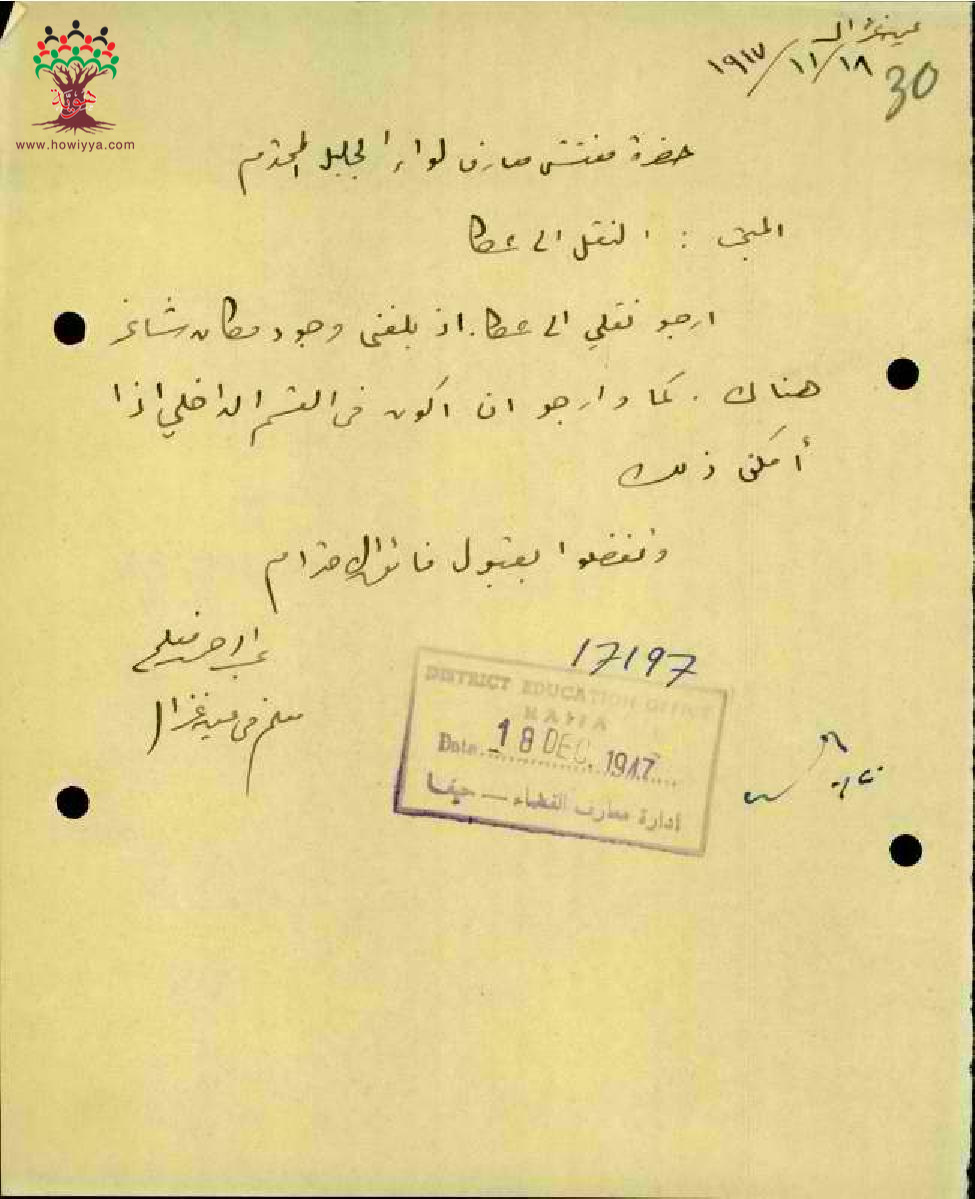 عين غزال
١٩٤٧/١١/١٨
30
هوية
www.howiyya.com
حضرة مفتش معارف لواء الجليل المحترم
المبحث : النقل الى عكا
ارجو نقلي الى عكا. اذ بلغني وجود مكان شاغر
هناك . كما وارجو ان اكون في القسم الداخلي اذا
أمكن ذلك
وتفضلوا بقبول فائق الاحترام
معلم في عين غزال
17197
DISTRICT EDUCATION OFFICE
HAIFA
Date. 18 DEC. 1947
أدارة معارف القضاء — حيفا